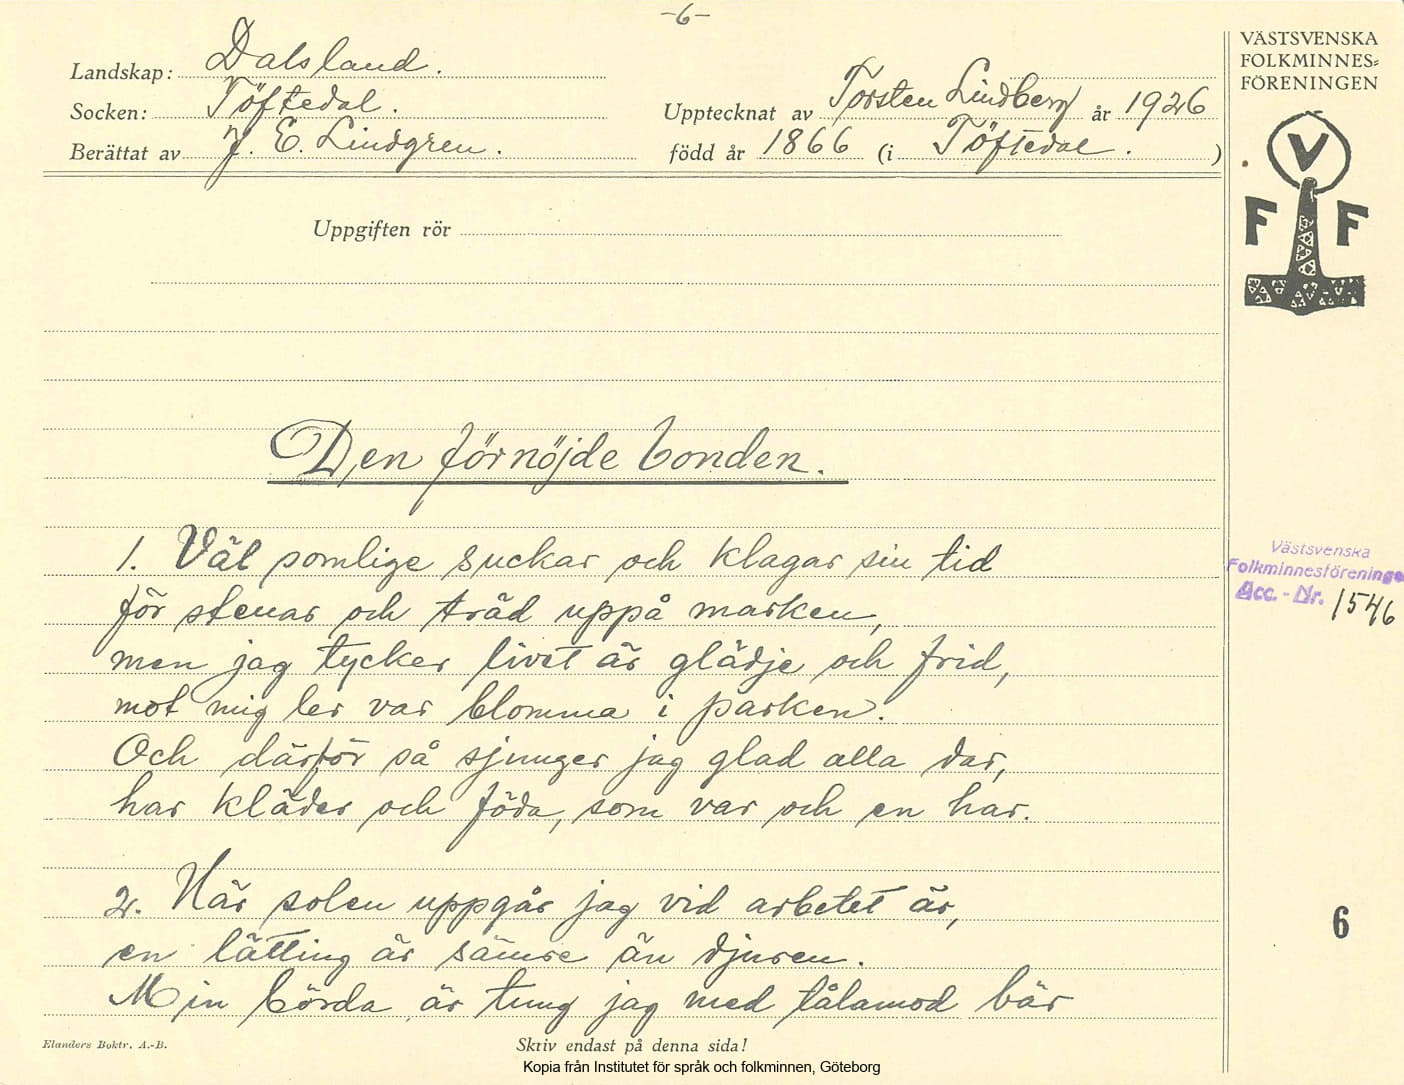 -6-
VÄSTSVENSKA
FOLKMINNES=
FÖRENINGEN
Landskap: Dalsland.
Socken: Töftedal.
Upptecknat av Torsten Lindberg år 1926
Berättat av J. E. Lindgren.
född år 1866 (i Töftedal. )
V
F F
Uppgiften rör
Den förnöjde bonden.
1. Väl somlige suckar och klagar sin tid
för stenar och träd uppå marken,
men jag tycker livet är glädje och frid,
mot mig ler var blomma i parken.
Och därför så sjunger jag glad alla dar,
har kläder och föda, som var och en har.
Västsvenska
Folkminnesföreningen
Acc.-Nr. 1546
2. När solen uppgår jag vid arbetet är,
en lätting är sämre än djuren.
Min börda är tung jag med tålamod bär
6
Elanders Boktr. A.-B.
Skriv endast på denna sida!
Kopia från Institutet för språk och folkminnen, Göteborg